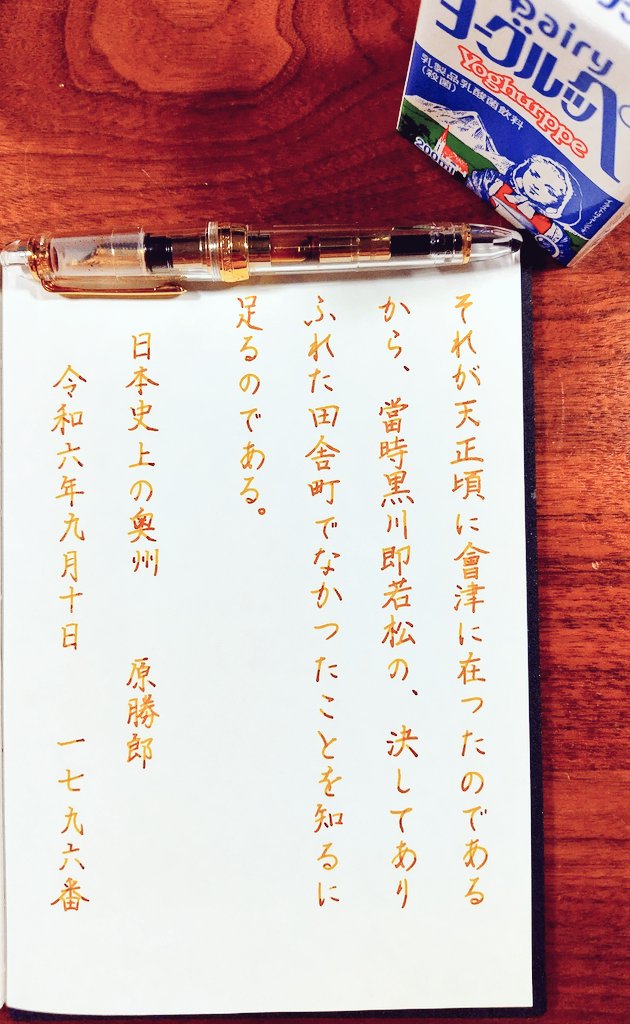 それが天正頃に會津に在つたのである
から、當時黒川即若松の、決してあり
ふれた田舎町でなかつたことを知るに
足るのである。
日本史上の奥州 原勝郎
令和六年九月十日 一七九六番
Dairy
ヨーグルッペ
Yoghurppe
乳製品乳酸菌飲料
(殺菌)
200ml